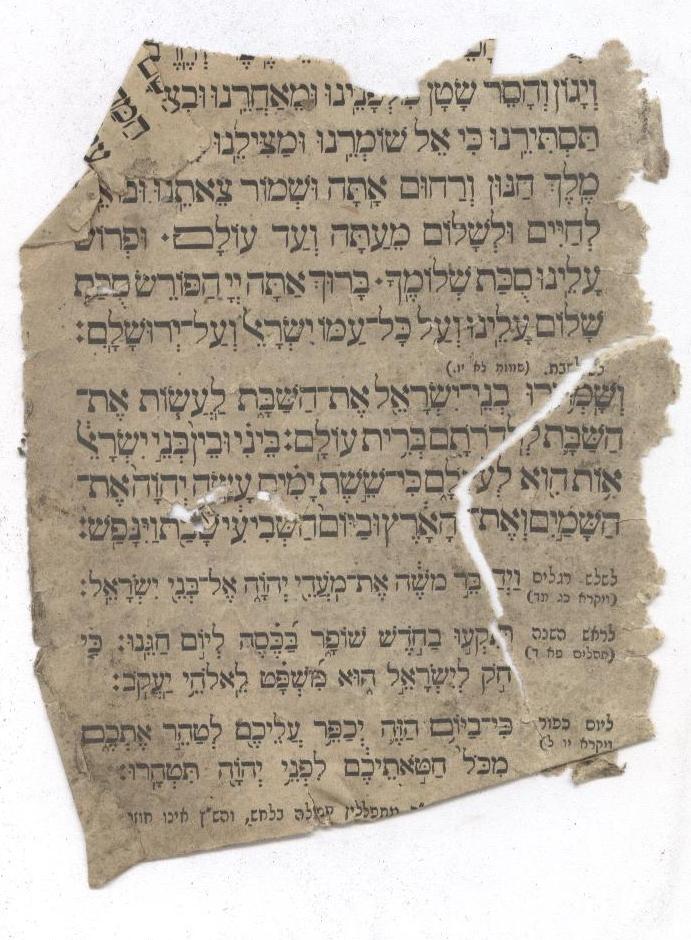 וְיָגוֹן וְהָסֵר שָׂטָן מִלְּפָנֵינוּ וּמֵאַחֲרֵנוּ וּבְצֵ
תַּסְתִּירֵנוּ כִּי אֵל שׁוֹמְרֵנוּ וּמַצִּילֵנוּ
מֶלֶךְ חַנּוּן וְרַחוּם אָתָּה וּשְׁמוֹר צֵאתֵנוּ וּבוֹאֵ
לְחַיִּים וּלְשָׁלוֹם מֵעַתָּה וְעַד עוֹלָם · וּפְרוֹשׂ
עָלֵינוּ סֻכַּת שְׁלוֹמֶךָ · בָּרוּךְ אַתָּה יְיָ הַפּוֹרֵשׂ סֻכַּת
שָׁלוֹם עָלֵינוּ וְעַל כָּל־עַמּוֹ יִשְׂרָאֵל וְעַל־יְרוּשָׁלָםִ:
לשבת. (שמות לא יו.)
וְשָׁמְרוּ בְנֵי־יִשְׂרָאֵל אֶת־הַשַּׁבָּת לַעֲשׂוֹת אֶת־
הַשַּׁבָּת לְדֹרֹתָם בְּרִית עוֹלָם: בֵּינִי וּבֵין בְּנֵי יִשְׂרָאֵל
אוֹת הִוא לְעֹלָם כִּי־שֵׁשֶׁת יָמִים עָשָׂה יְהוָה אֶת־
הַשָּׁמַיִם וְאֶת־הָאָרֶץ וּבַיּוֹם הַשְּׁבִיעִי שָׁבַת וַיִּנָּפַשׁ:
לשלש רגלים וַיְדַבֵּר מֹשֶׁה אֶת־מֹעֲדֵי יְהוָה אֶל־בְּנֵי יִשְׂרָאֵל:
(ויקרא כג מד)
לראש השנה תִּקְעוּ בַחֹדֶשׁ שׁוֹפָר בַּכֶּסֶה לְיוֹם חַגֵּנוּ: כִּי
(תהלים פא ד)
חֹק לְיִשְׂרָאֵל הוּא מִשְׁפָּט לֵאלֹהֵי יַעֲקֹב:
ליום כפור כִּי־בַיּוֹם הַזֶּה יְכַפֵּר עֲלֵיכֶם לְטַהֵר אֶתְכֶם
ויקרא יו ל)
מִכֹּל חַטֹּאתֵיכֶם לִפְנֵי יְהוָה תִּטְהָרוּ:
מתפללין תפולה בלחש, והש״ץ אינו חוזר